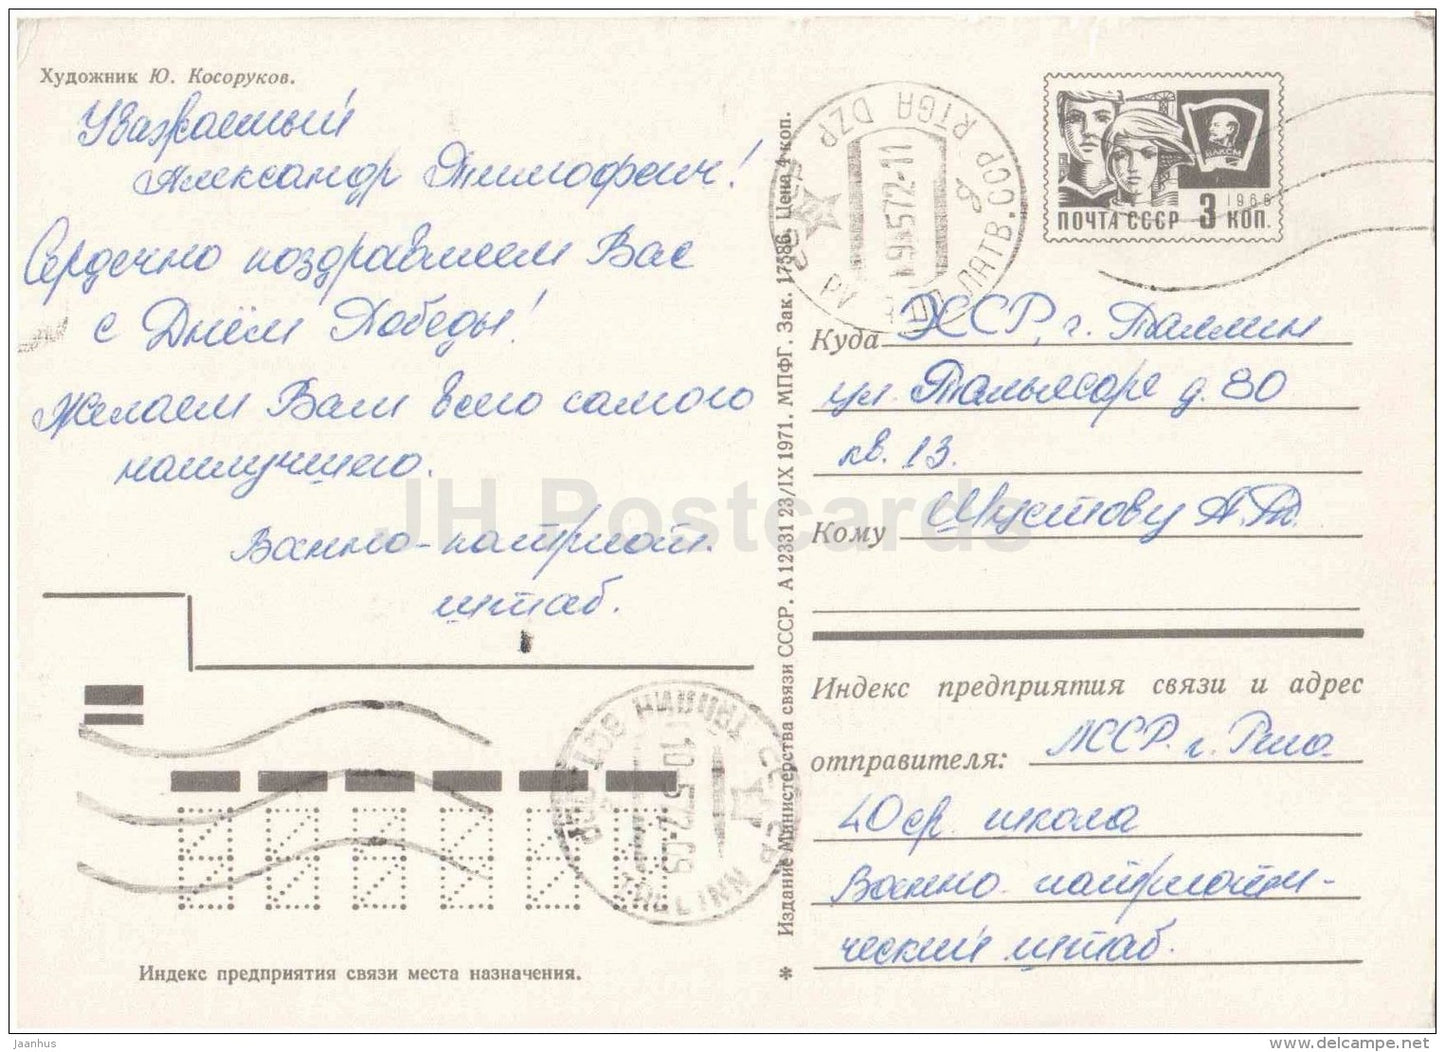 Художник Ю. Косоруков.
Уважаемый
Александр Тимофеич!
Сердечно поздравляем Вас
с Днём Победы!
Желаем Вам всего самого
наилучшего.
Военно-патриот.
штаб.
Индекс предприятия связи места назначения.
Издание Министерства связи СССР. А 12331 23/IX 1971. МПФГ. Зак. 17586. Цена 4 коп.
RIGA DZP
ЛАТВ. ССР
-9.-572-11
ВЛКСМ
1966
ПОЧТА СССР 3 КОП.
Куда ЭССР, г. Таллин
ул. д. 80
кв. 13.
Кому Шустову А.Т.
Индекс предприятия связи и адрес
отправителя: ЛССР. г. Рига
40 ср. школа
Военно патриоти-
ческий штаб.
ТАЛЛИН
10-572-09
TALLINN
JH Postcards
jaanhus
www.delcampe.net